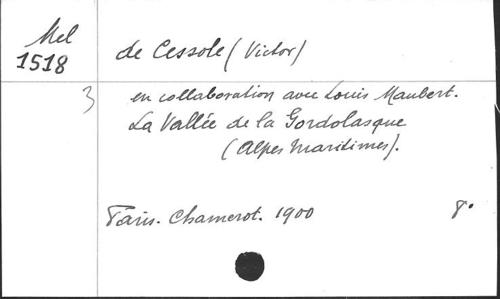 Mel
1518
3
de Cessole (Victor)
en collaboration avec Louis Maubert.
La Vallée de la Gordolasque
(Alpes Maritimes).
Paris. Chamerot. 1900
8°